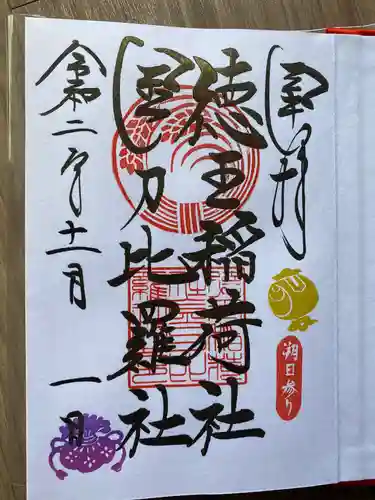 奉拝
徳王稲荷社
金刀比羅社
令和二年十一月一日
朔日参り